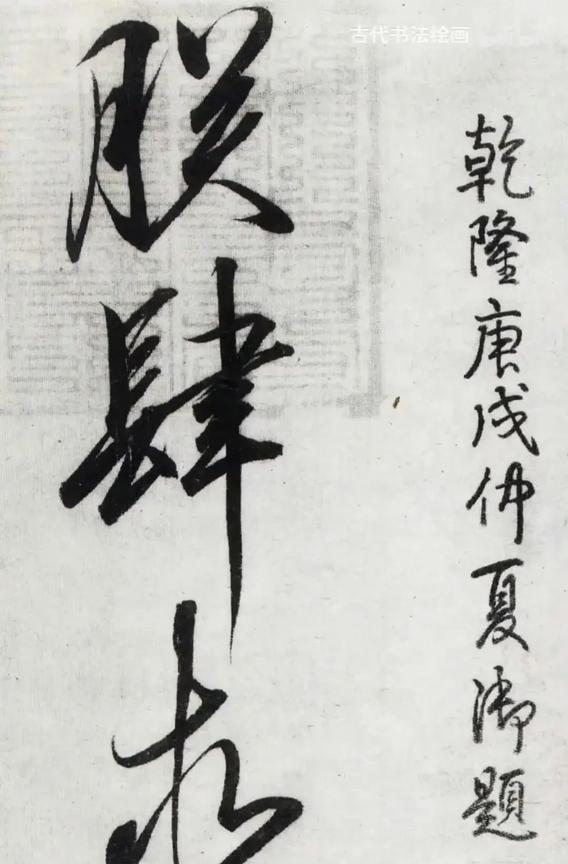 古代书法绘画
乾隆庚戌仲夏御題
朕肆求